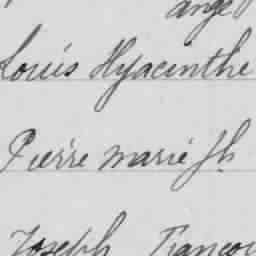 ange
Louis Hyacinthe
Pierre marie Jh
Joseph Françoi